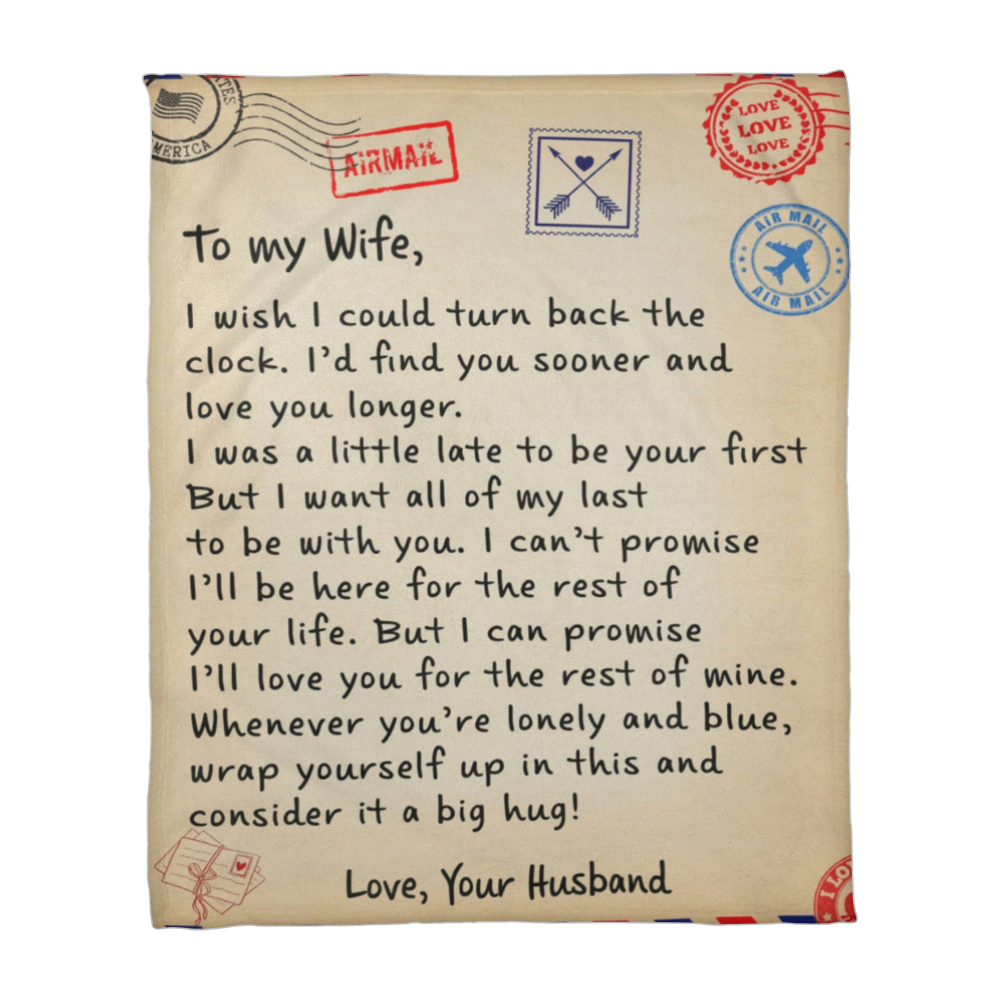 TATES
MERICA
AIRMAIL
LOVE
LOVE
LOVE
AIR MAIL
AIR MAIL
To my Wife,
I wish I could turn back the
clock. I'd find you sooner and
love you longer.
I was a little late to be your first
But I want all of my last
to be with you. I can't promise
I'll be here for the rest of
your life. But I can promise
I'll love you for the rest of mine.
Whenever you're lonely and blue,
wrap yourself up in this and
consider it a big hug!
Love, Your Husband